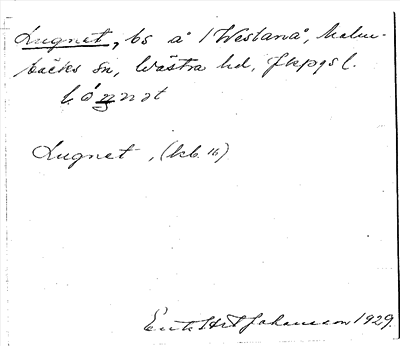 Lugnet, bs å 1 Westanå, Malm-
bäcks sn, Wästra hd, Jkpgs l.
Lugnet, (kb. 16)
Johansson 1929.